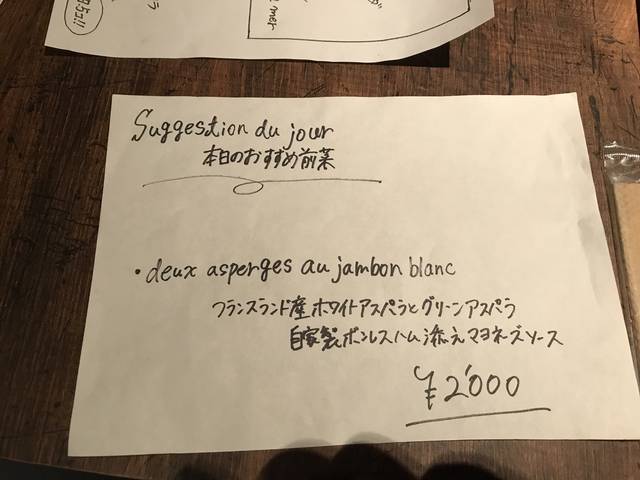 mer
Suggestion du jour
本日のおすすめ前菜
・deux asperges au jambon blanc
フランスランド産ホワイトアスパラとグリーンアスパラ
自家製ボンレスハム添えマヨネーズソース
¥2'000